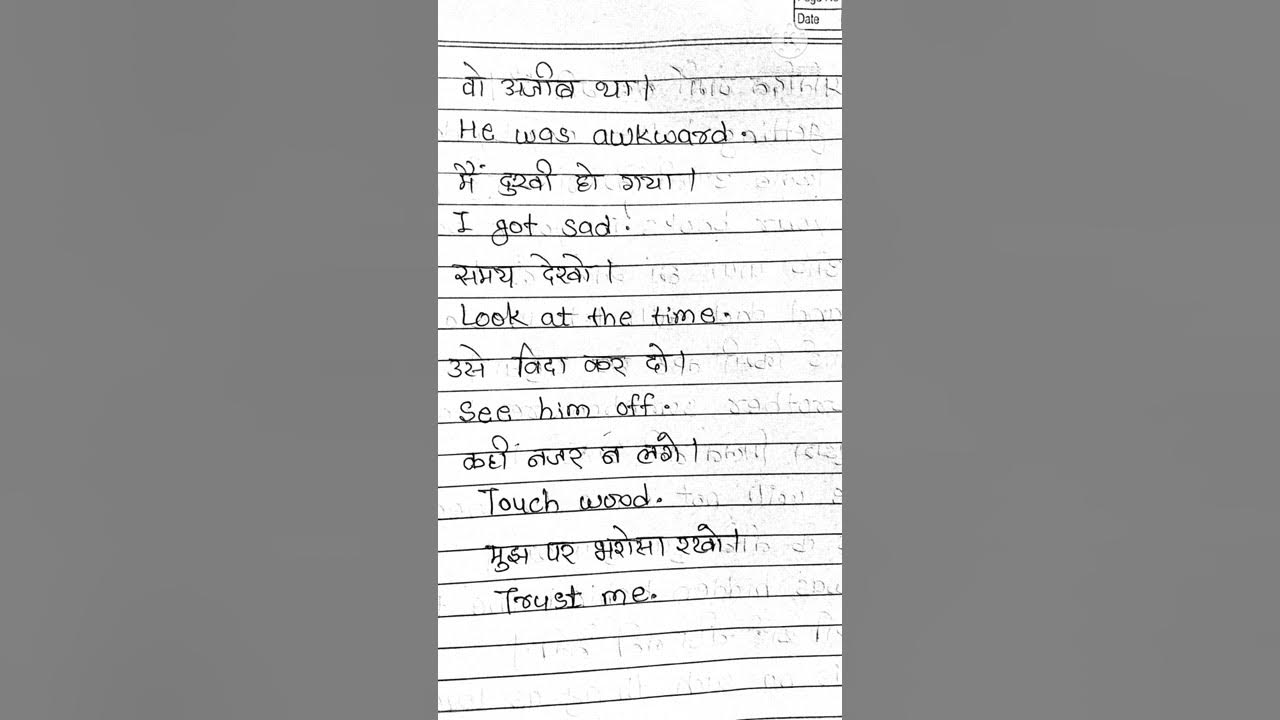 Page No
Date
वो अजीब था।
He was awkward.
मैं दुखी हो गया।
I got sad.
समय देखो।
Look at the time.
उसे विदा कर दो।
See him off.
कहीं नजर न लगे।
Touch wood.
मुझ पर भरोसा रखो।
Trust me.